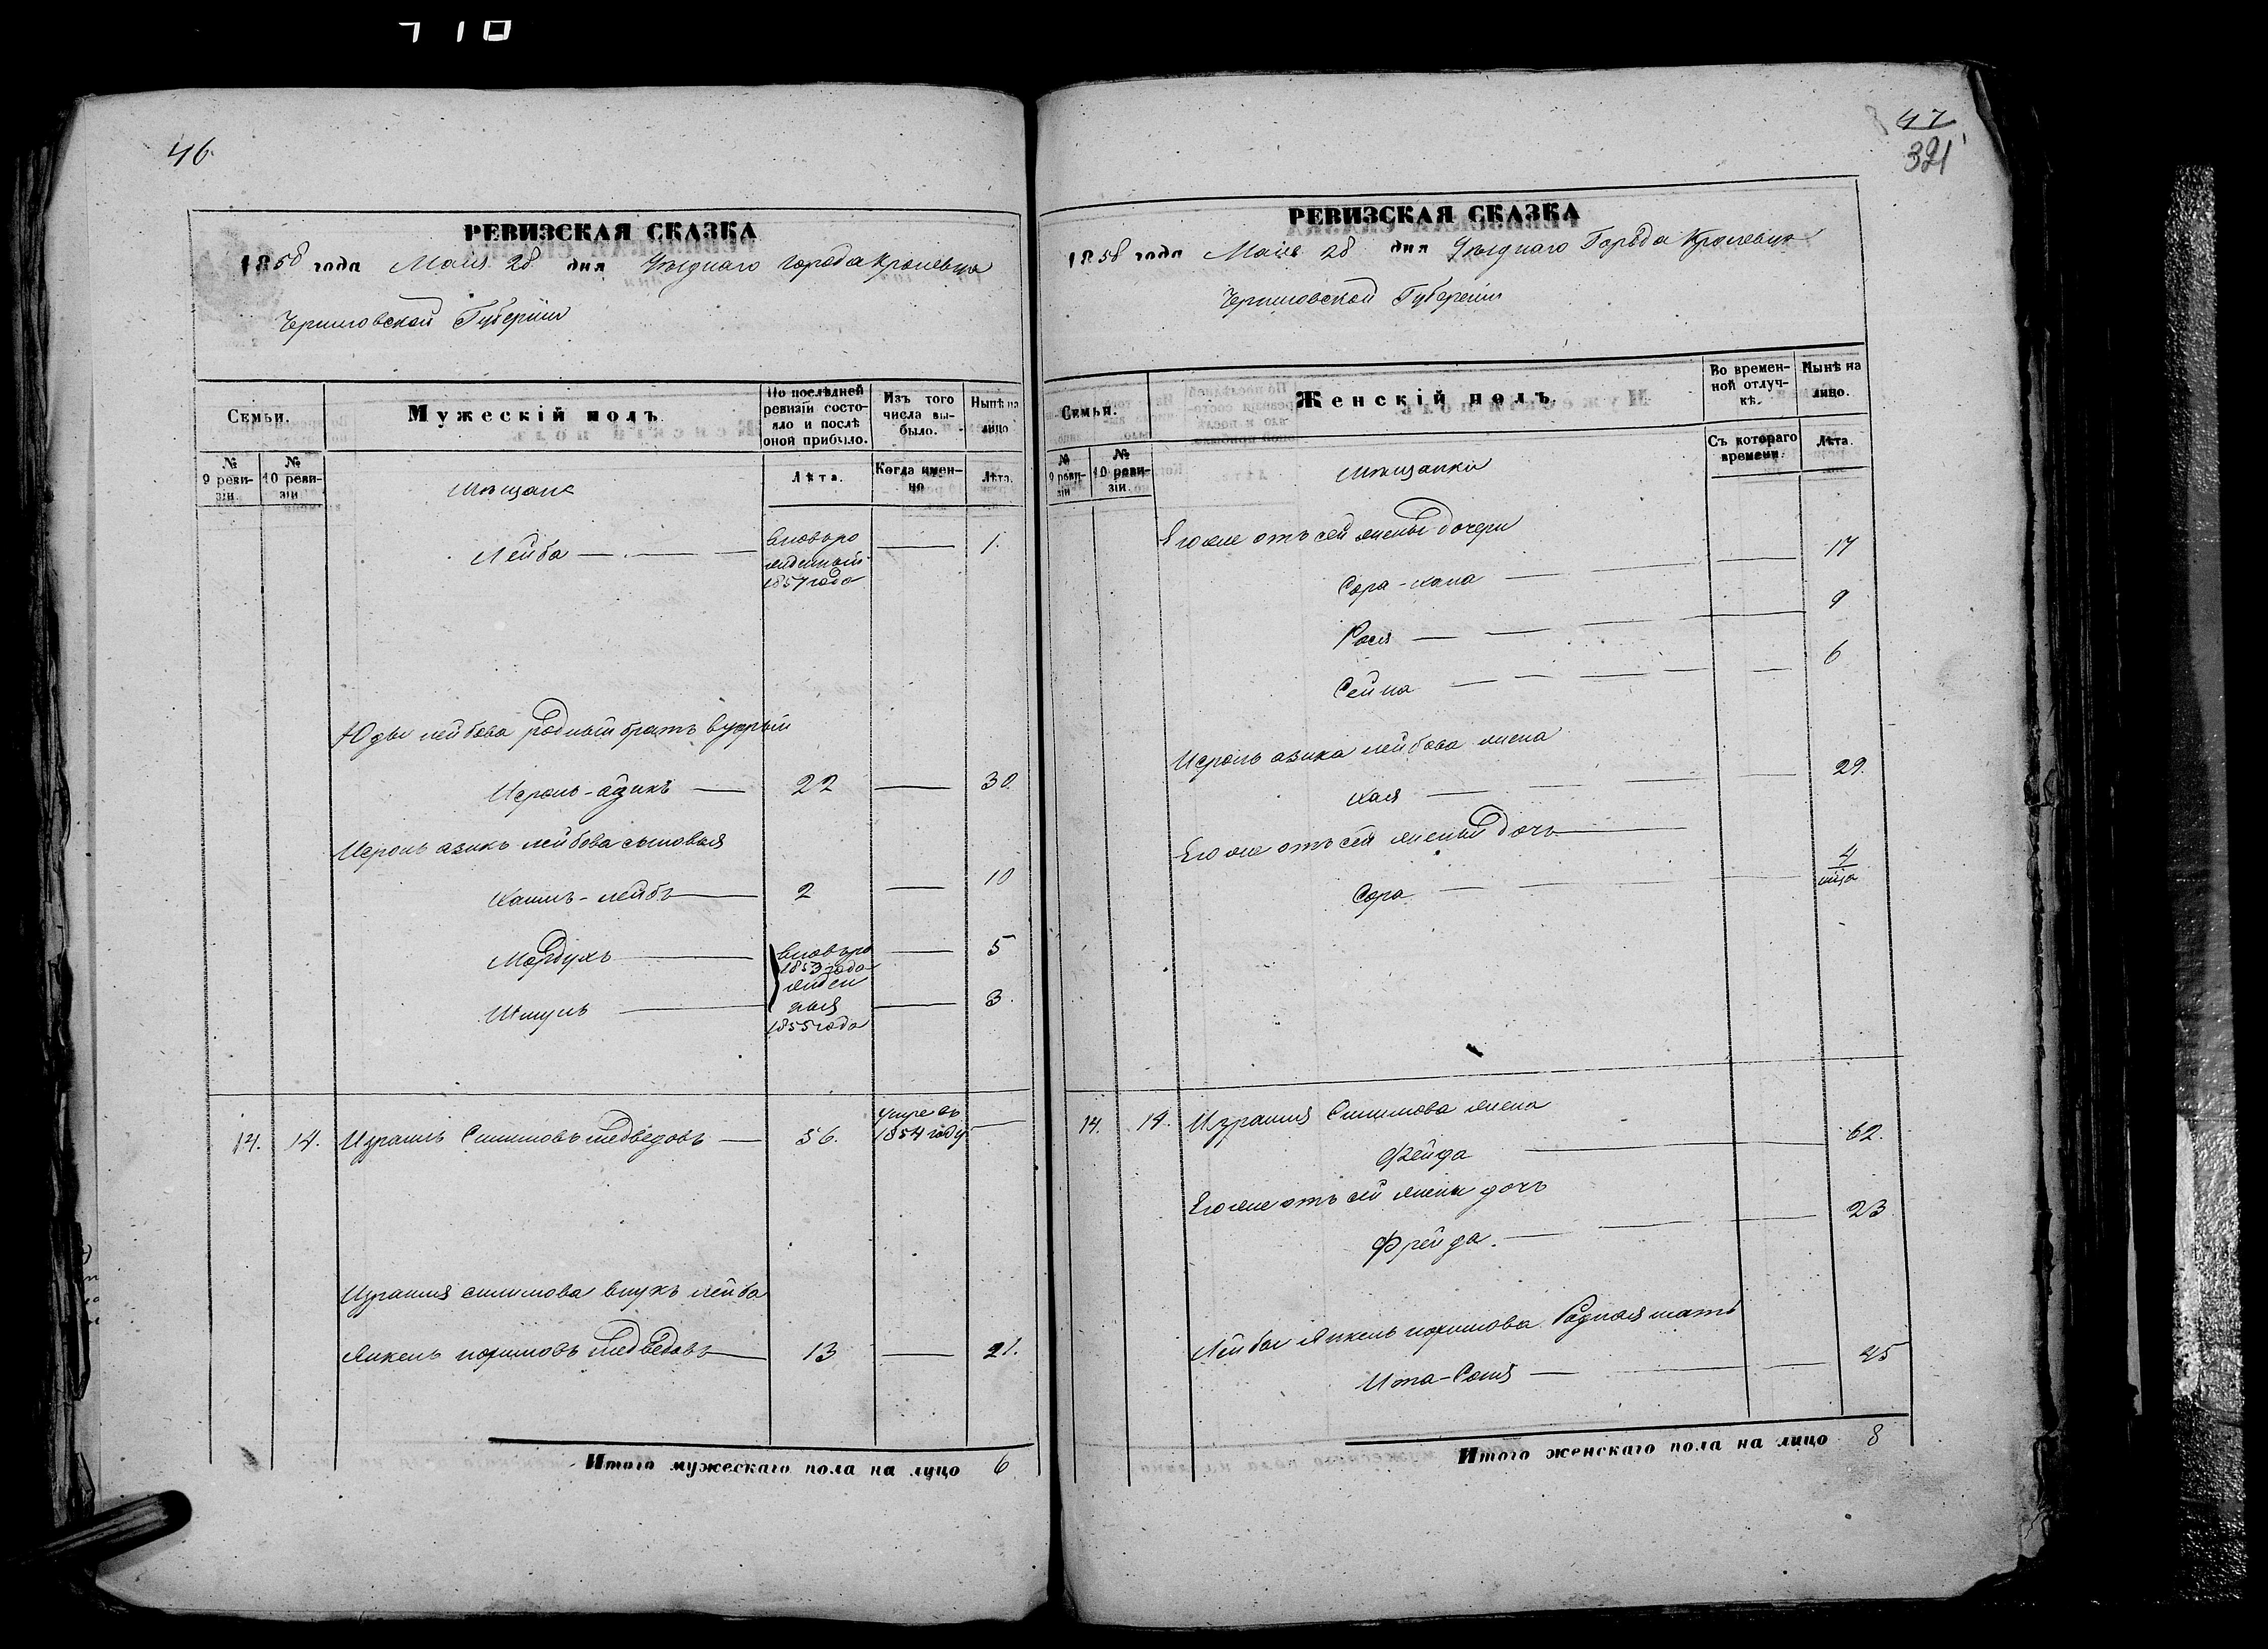 46
РЕВИЗСКАЯ СКАЗКА
1858 года Маія 28 дня Уѣзднаго города Кролевца
Черниговской Губерніи
Семьи.
Мужескій полъ.
По послѣдней ревизіи состояло и послѣ оной прибыло.
Изъ того числа выбыло.
Нынѣ на лицо
№ 9 ревизіи.
№ 10 ревизіи
Мѣщане
Лѣта.
Когда именно
Лѣта.
Лейба — вновьрожденный 1857 года — 1.
Юды лейбова родный братъ вторый
Исроль-азикъ — 22 — 30.
Исроль азикъ лейбова сыновья
Хаимъ-лейбъ — 2 — 10
Мордухъ — вновьро 1853 года — 5
жден
Шмуль — ныя — 3.
1855 года
14. 14. Израиль Симиовъ медведовъ — 56. умре въ 1854 году —
Израиля симиова внукъ лейба
Янкель нохимовъ медведовъ — 13 — 21.
Итого мужескаго пола на лицо 6
47
321
РЕВИЗСКАЯ СКАЗКА
1858 года Маія 28 дня Уѣзднаго Города Кролевца
Черниговской Губерніи
Семьи.
Женскій полъ.
Во временной отлучкѣ.
Нынѣ на лицо.
№ 9 ревизіи
№ 10 ревизіи.
Мѣщанки
Съ котораго времени.
Лѣта.
Его же отъ сей жены дочери
Сора-хана — 17
Рося — 9
Сейна — 6
Исроль азика лейбова жена
Хая — 29.
Его же отъ сей жены дочь
Сора — 4 м-ца
14. 14. Израиля Симиова жена
Фейга — 62.
Его же отъ сей жены дочь
Фрейда. — 23
Лейбы Янкель нохимова Родная мать
Ита-Соня — 45
Итого женскаго пола на лицо 8